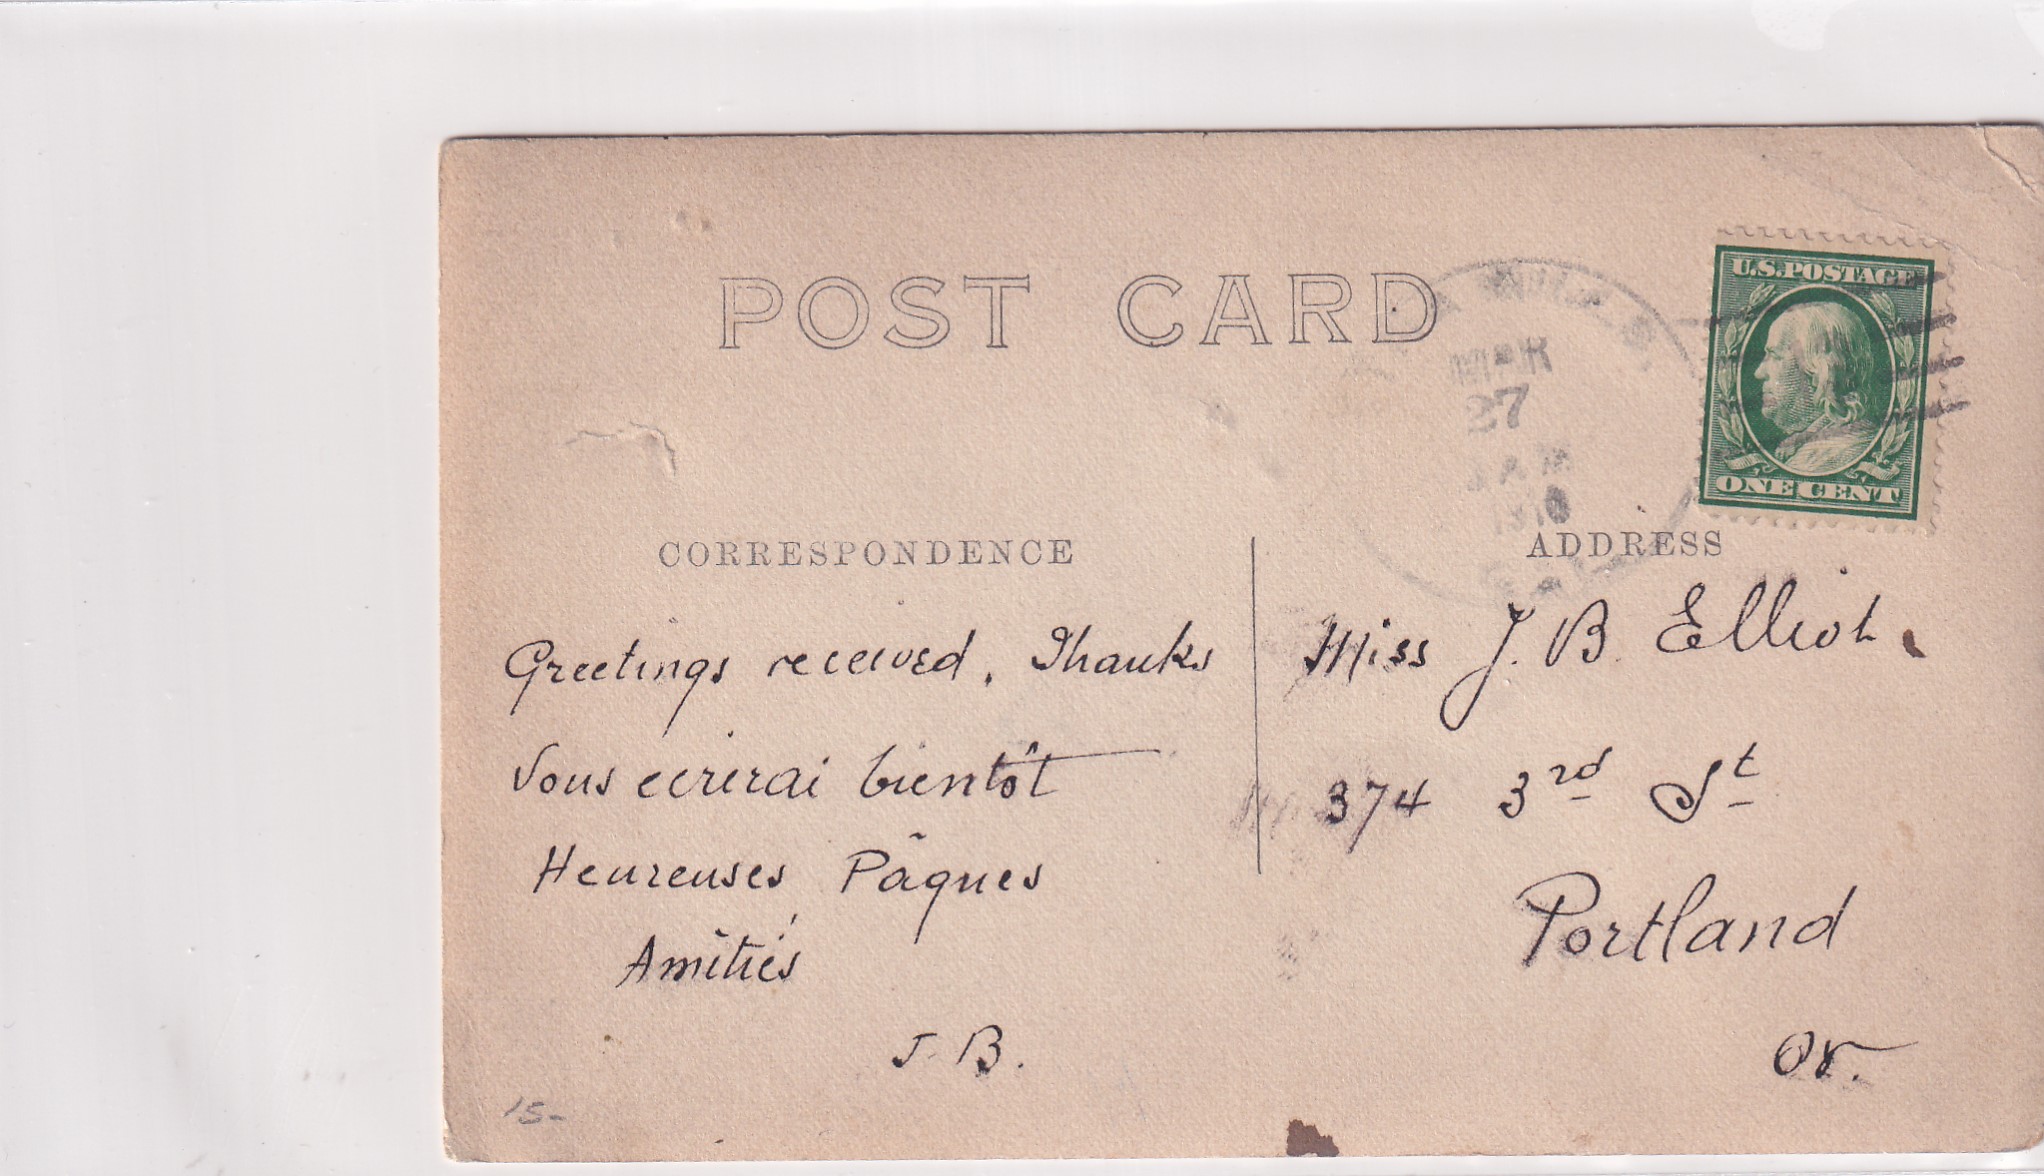 POST CARD
U.S.POSTAGE
ONE CENT
27
1910
CORRESPONDENCE
ADDRESS
Greetings received. Thanks
Vous ecrirai bientôt
Heureuses Pâques
Amîtiés
J. B.
15-
Miss J. B. Elliot.
374 3rd St
Portland
Or.